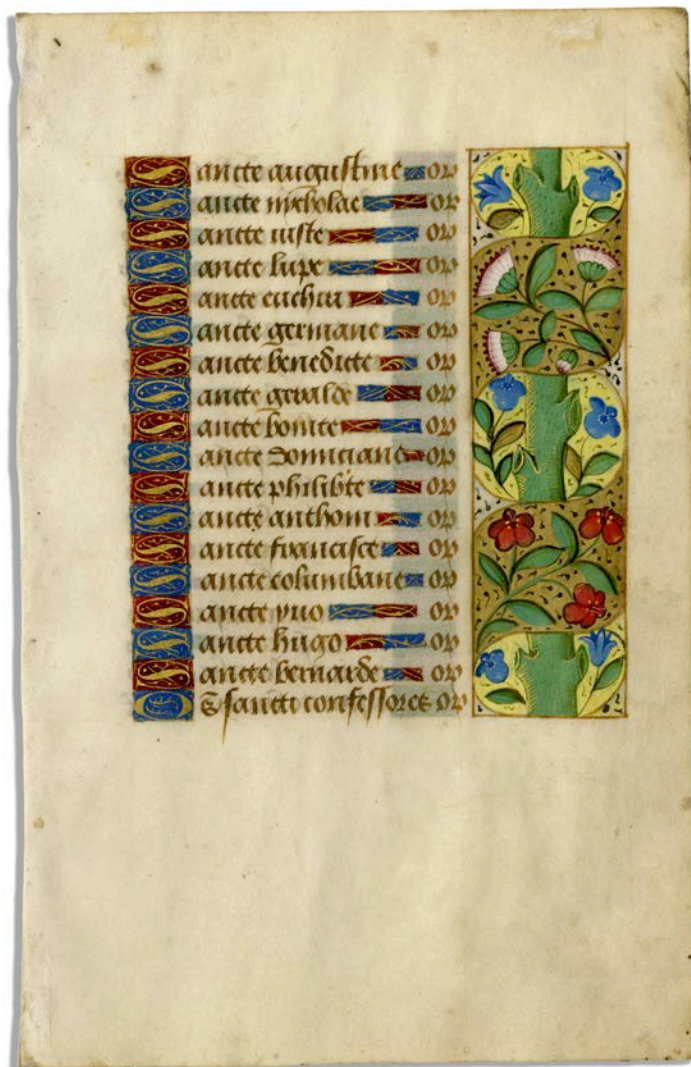 Sancte augustine or
Sancte nicholae or
Sancte iuste or
Sancte lupe or
Sancte eucheri or
Sancte germane or
Sancte benedicte or
Sancte gevalde or
Sancte bonite or
Sancte Domiciane or
Sancte philib'te or
Sancte anthoni or
Sancte francisce or
Sancte columbane
Sancte yuo or
Sancte hugo or
Sancte bernarde or
Os sancti confessores or